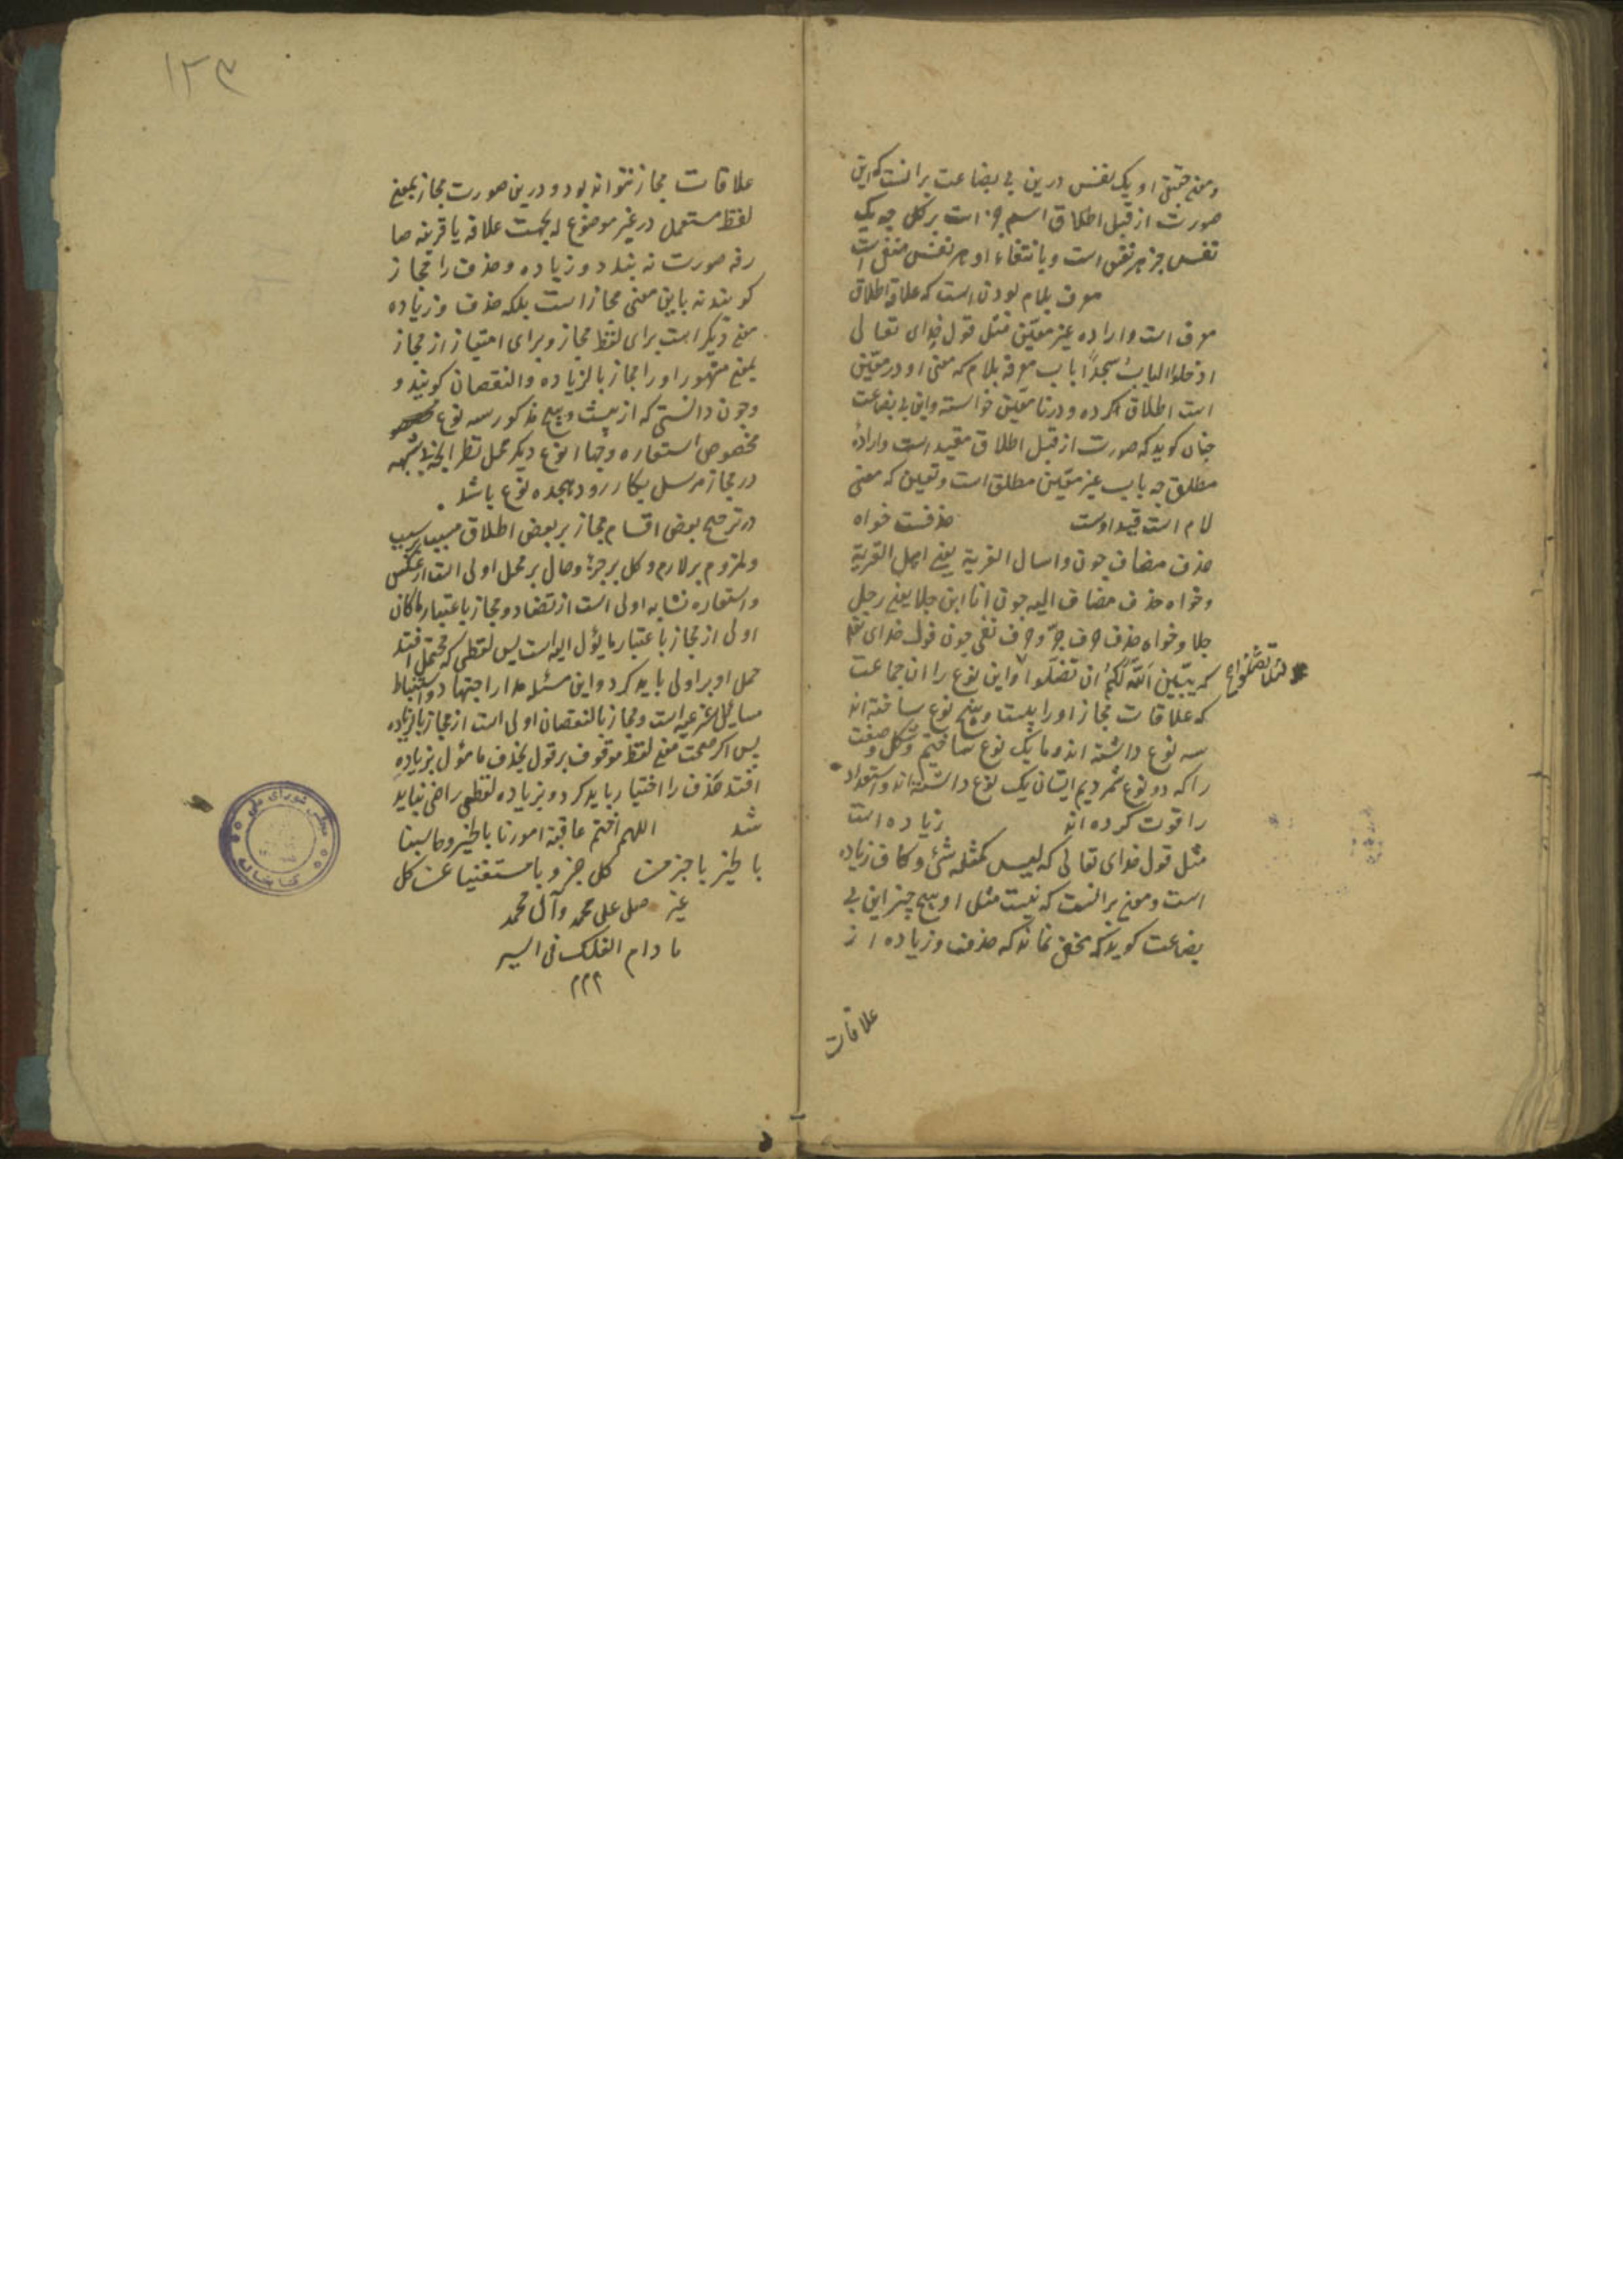 ومعنی حقیقی او یک نفس درین بی بضاعت برانست که این
صورت از قبل اطلاق اسم جزء است بر کل چه یک
نفس جزء هر نفس است و بانتفاء او هر نفس منتفی است
معرف بلام بودن است که علاقه اطلاق
معرف است واراده غیر معین مثل قول خدای تعالی
ادخلوا الباب سجداً باب معرفه بلام که معنی او در معین
است اطلاق کرده و در نا معین خواسته واین بی بضاعت
چنان کوید که صورت از قبل اطلاق مقید است واراده
مطلق چه باب غیر معین مطلق است وتعین که معنی
لام است قید اوست حذفست خواه
حذف مضاف چون واسال القریة یعنی اهل القریة
وخواه حذف مضاف الیه چون انا ابن جلا یعنی رجل
جلا وخواه حذف حرف جرّ وحرف نفی چون قول خدای تعلی
کریمه یبین اللّه لکم ان تضلّوا واین نوع را ان جماعت
لئلا تضلوا
که علاقات مجاز او را بیست و پنج نوع ساخته اند
سه نوع داشته اند وما یک نوع ساختیم وشکل وصفت
را که دو نوع شمردیم ایشان یک نوع داشته اند واستعداد
را قوت کرده اند زیاده است
مثل قول خدای تعالی که لیس کمثله شیء وکاف زیاده
است ومعنی برانست که نیست مثل او هیچ چیز این بی
بضاعت کوید که مخفی نماند که حذف وزیاده از
علاقات
۱۲۳
علاقات مجاز نتواند بود و درین صورت مجاز بمعنی
لفظ مستعمل در غیر موضوع له بجهت علاقه با قرینه صا
رفه صورت نه بندد وزیاده وحذف را مجاز
کویند نه باین معنی مجاز است بلکه حذف وزیاده
معنی دیکر است برای لفظ مجاز وبرای امتیاز از مجاز
بمعنی مشهور او را مجاز بالزیاده والنقصان کویند و
وچون دانستی که از بیست وپنج مذکور سه نوع
مخصوص استعاره وچهار نوع دیکر محل نظر
در مجاز مرسل بکار رود هجده نوع باشد
در ترجیح بعض اقسام مجاز بر بعض اطلاق مسبب بر سبب
وملزوم بر لازم وکل بر جزء وحال بر محل اولی است از عکس
واستعاره تشابه اولی است از تضاد ومجاز باعتبار ماکان
اولی از مجاز باعتبار ما یؤل الیه است پس لفظی که محتمل افتد
حمل او بر اولی باید کرد واین مسئله مدار اجتهاد واستنباط
مسایل شرعیه است ومجاز بالنقصان اولی است از مجاز بالزیاده
پس اکر صحت معنی لفظ موقوف بر قول بحذف ما مؤل بزیاده
افتد حذف را اختیار باید کرد و بزیاده لفظی راضی نباید
شد اللهم اختم عاقبة امورنا بالخیر وحاسبنا
بالخیر کل خیر ویا مستغنیا عن کل
غیر صل علی محمد وآل محمد
ما دام الفلک فی السیر
۲۲۲
مجلس شورای ملی
کتابخانه